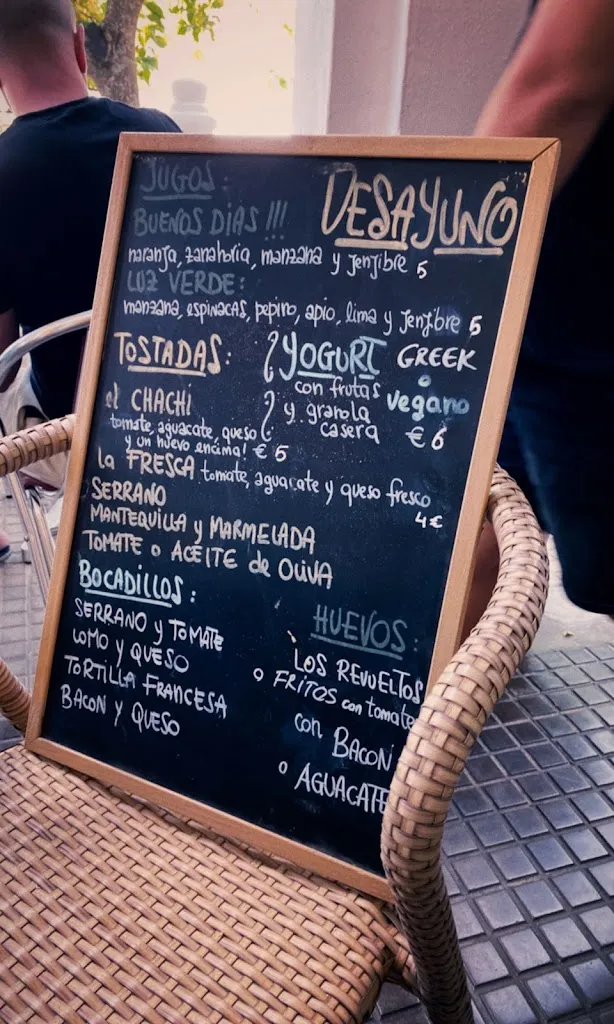 DESAYUNO
JUGOS:
BUENOS DIAS !!!
naranja, zanahoria, manzana y jenjibre 5
LUZ VERDE:
manzana, espinacas, pepino, apio, lima y jenjibre 5
TOSTADAS:
el CHACHI
tomate, aguacate, queso
y un huevo encima! € 5
YOGURT GREEK
o
con frutas vegano
y granola
casera € 6
la FRESCA tomate, aguacate y queso fresco
4€
SERRANO
MANTEQUILLA y MARMELADA
TOMATE o ACEITE de OLIVA
BOCADILLOS:
SERRANO y TOMATE
LOMO y QUESO
TORTILLA FRANCESA
BACON y QUESO
HUEVOS:
LOS REVUELTOS
o FRITOS con tomate
con BACON
o AGUACATE